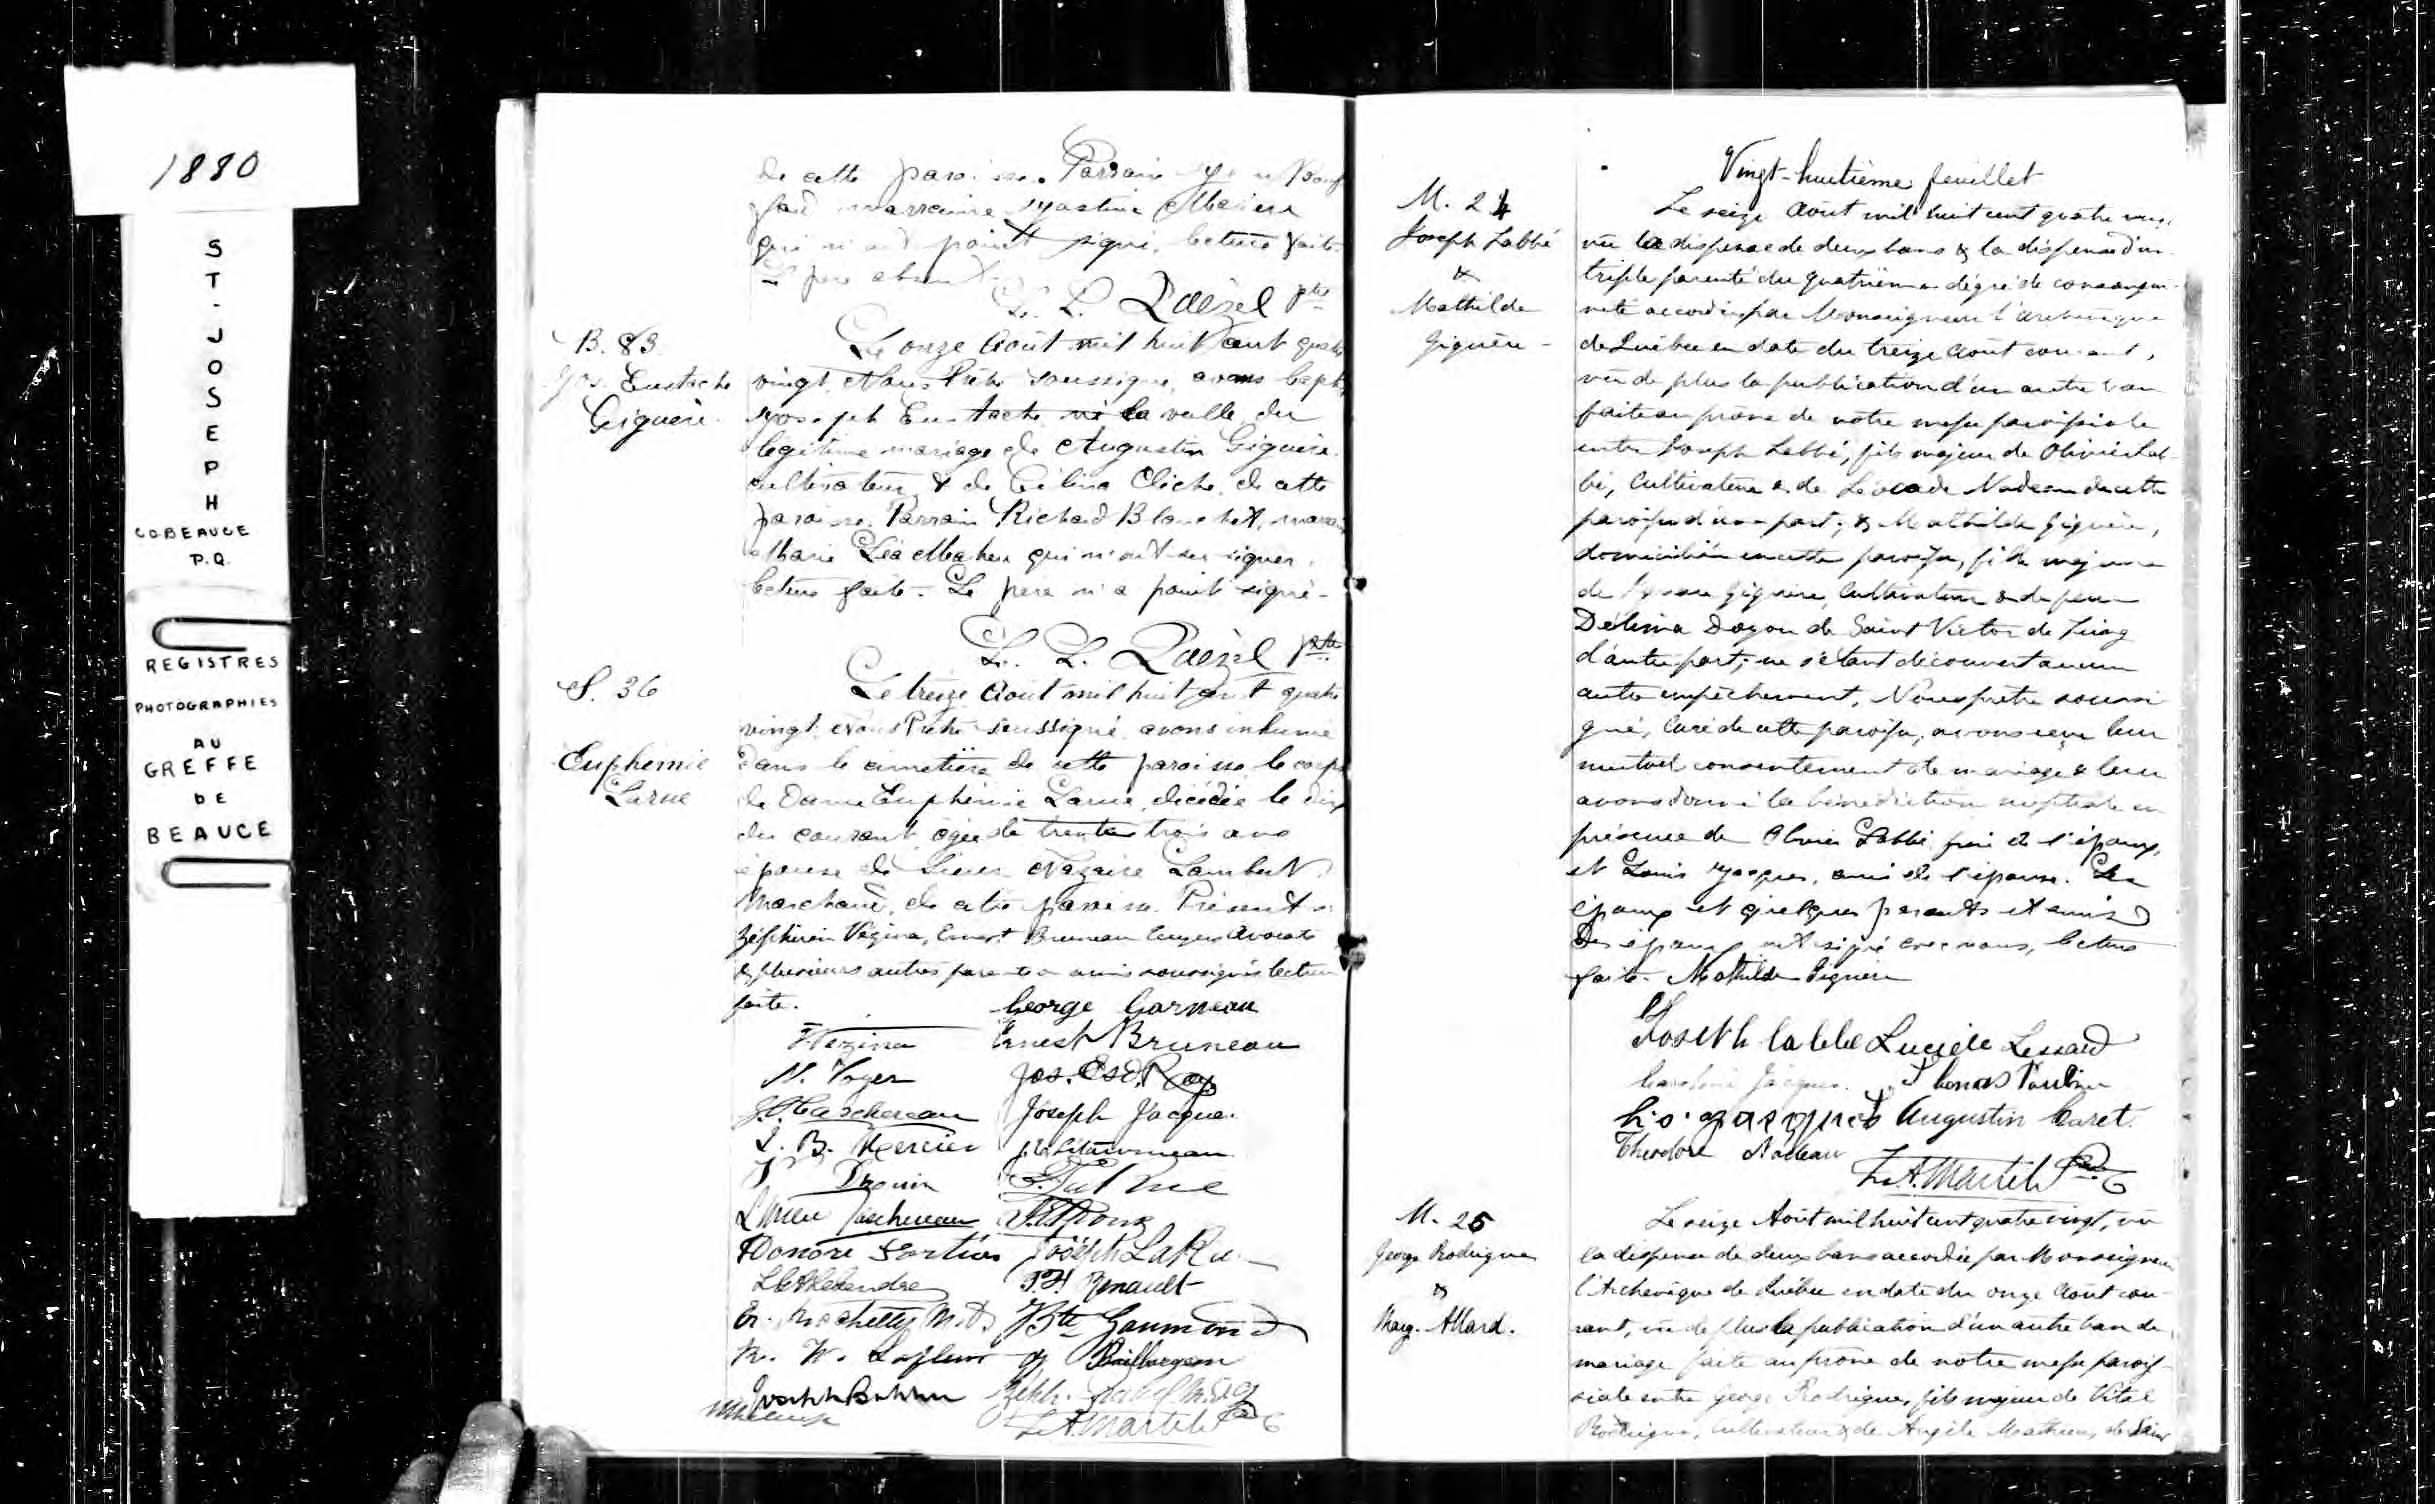 1880
ST-JOSEPH
CO BEAUCE
P.Q.
REGISTRES
PHOTOGRAPHIES
AU
GREFFE
DE
BEAUCE
de cette paroisse. Parrain
marraine
qui n'ont point signé. Lecture faite.
Le pere absent.
L. L. Paézel Ptre
B. 83
Jos. Eustache
Giguère.
Le onze Août mil huit cent quatre
vingt, Nous Prêtre soussigné, avons bapt.
Joseph Eustache né la veille du
légitime mariage de Augustin Giguère
cultivateur & de Célina Cliche de cette
paroisse. Parrain Richard Blanchet, marraine
Marie Léa Maheu qui n'ont su signer.
Lecture faite. Le pere n'a point signé.
L. L. Paézel Ptre
S. 36
Euphémie
Larue
Le treize Août mil huit cent quatre
vingt, Nous Prêtre soussigné, avons inhumé
dans le cimetière de cette paroisse le corps
de Dame Euphémie Larue, décédée le dix
du courant, âgée de trente trois ans
épouse de Sieur Nazaire Lambert,
Marchand, de cette paroisse. Présents
Zéphirin Vézina, Ernest Bruneau Avocats
& plusieurs autres parents & amis soussignés lecture
faite.
George Garneau
Vézina Ernest Bruneau
N. Voyer Jos. Esd. Roy
Taschereau Joseph Jacque.
L. B. Mercier
Drouin
Taschereau
Honoré Fortier Joseph LaRue
Renault
Rochette M.D. Bte Gaumond
W. Lafleur Baillargeon
Joseph
L. A. Martel Ptre
Vingt-huitième feuillet
M. 24
Joseph Labbé
&
Mathilde
Giguère
Le seize Août mil huit cent quatre vingt
vu la dispense de deux bans & la dispense d'un
triple parenté du quatrième dégré de consangui-
nité accordée par Monseigneur l'archevêque
de Québec en date du treize Août courant,
vu de plus la publication d'un autre ban
faite au prône de notre messe paroissiale
entre Joseph Labbé, fils majeur de Olivier Lab-
bé, Cultivateur & de Léocade Nadeau de cette
paroisse d'une part; & Mathilde Giguère,
domiciliée en cette paroisse, fille majeure
de Giguère, Cultivateur & de feue
Délima Doyon de Saint Victor de Tring
d'autre part; ne s'étant découvert aucun
autre empêchement, Nous prêtre soussi-
gné, Curé de cette paroisse, avons reçu leur
mutuel consentement de mariage & leur
avons donné la bénédiction nuptiale en
présence de Olivier Labbé frère de l'époux,
et Louis Jacques, ami de l'épouse. Les
époux et quelques parents et amis
des époux ont signé avec nous, lecture
faite. Mathilde Giguère
Joseph labbé Lucièle Lessard
Caroline Jacques. Thomas Poulin
Ls. jacques Augustin Caret.
Théodore Nadeau
L. A. Martel Ptre
M. 25
George Rodrigue
&
Marg. Allard.
Le seize Août mil huit cent quatre vingt, vu
la dispense de deux bans accordée par Monseigneur
l'Archevêque de Québec en date du onze Août cou-
rant, vu de plus la publication d'un autre ban de
mariage faite au prône de notre messe parois-
siale entre George Rodrigue, fils majeur de Vital
Rodrigue, Cultivateur & de Angèle Mathieu, de Saint